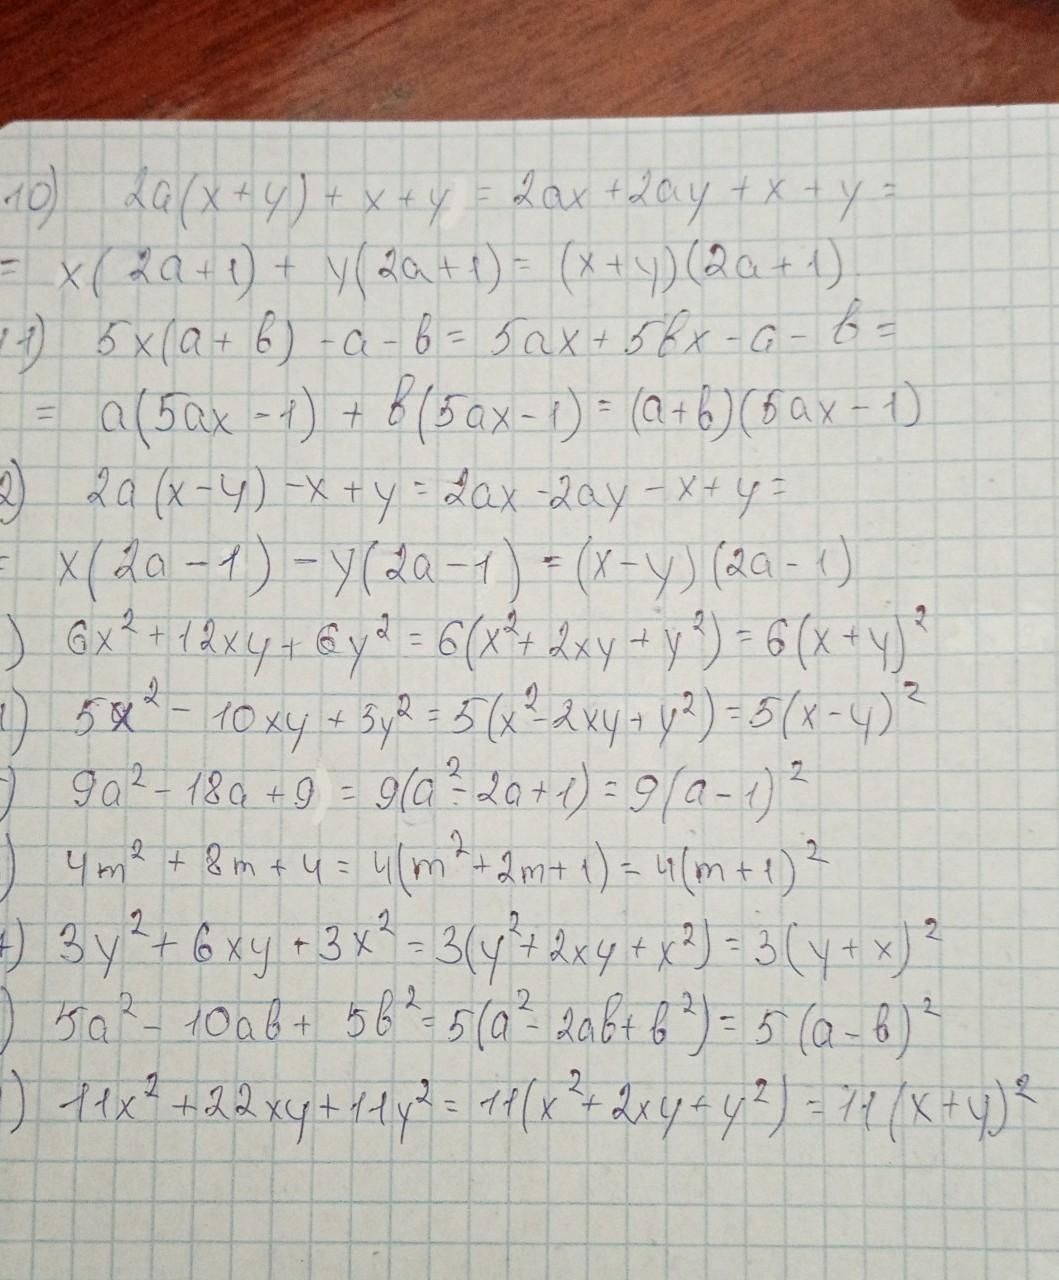 10) 2a(x+y)+x+y=2ax+2ay+x+y=
= x(2a+1)+y(2a+1)=(x+y)(2a+1)
11) 5x(a+b)-a-b=5ax+5bx-a-b=
= a(5ax-1)+b(5ax-1)=(a+b)(5ax-1)
2) 2a(x-y)-x+y=2ax-2ay-x+y=
= x(2a-1)-y(2a-1)=(x-y)(2a-1)
) 6x²+12xy+6y²=6(x²+2xy+y²)=6(x+y)²
) 5x²-10xy+5y²=5(x²-2xy+y²)=5(x-y)²
) 9a²-18a+9=9(a²-2a+1)=9(a-1)²
) 4m²+8m+4=4(m²+2m+1)=4(m+1)²
) 3y²+6xy+3x²=3(y²+2xy+x²)=3(y+x)²
) 5a²-10ab+5b²=5(a²-2ab+b²)=5(a-b)²
) 11x²+22xy+11y²=11(x²+2xy+y²)=11(x+y)²